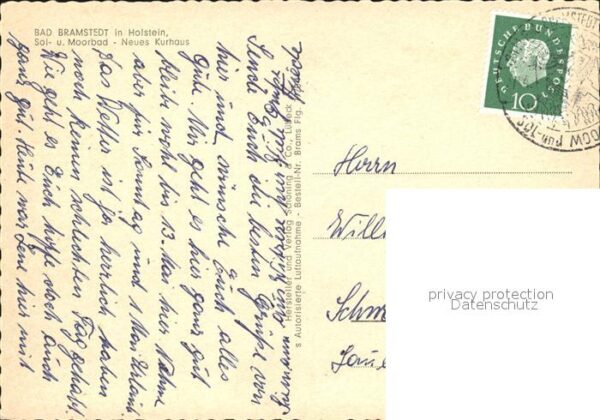 BAD BRAMSTEDT in Holstein,
Sol- u. Moorbad - Neues Kurhaus
Sende Euch die besten Grüße von
hier und wünsche Euch alles
Gute. Mir geht es hier ganz gut
bleibe wohl bis 13. Mai hier. Nehme
aber für Sonntag und 1 Mai Urlaub
Das Wetter ist ja herrlich haben
noch keinen schlechten Tag gehabt.
Wie geht es Euch hoffe doch auch
ganz gut. Heute war Lene hier mit
Hersteller und Verlag Schöning & Co., Lübeck
s Autorisierte Luftaufnahme - Bestell-Nr. Brams Flg.
DEUTSCHE BUNDESPOST
10
Herrn
Will
Schm
privacy protection
Datenschutz